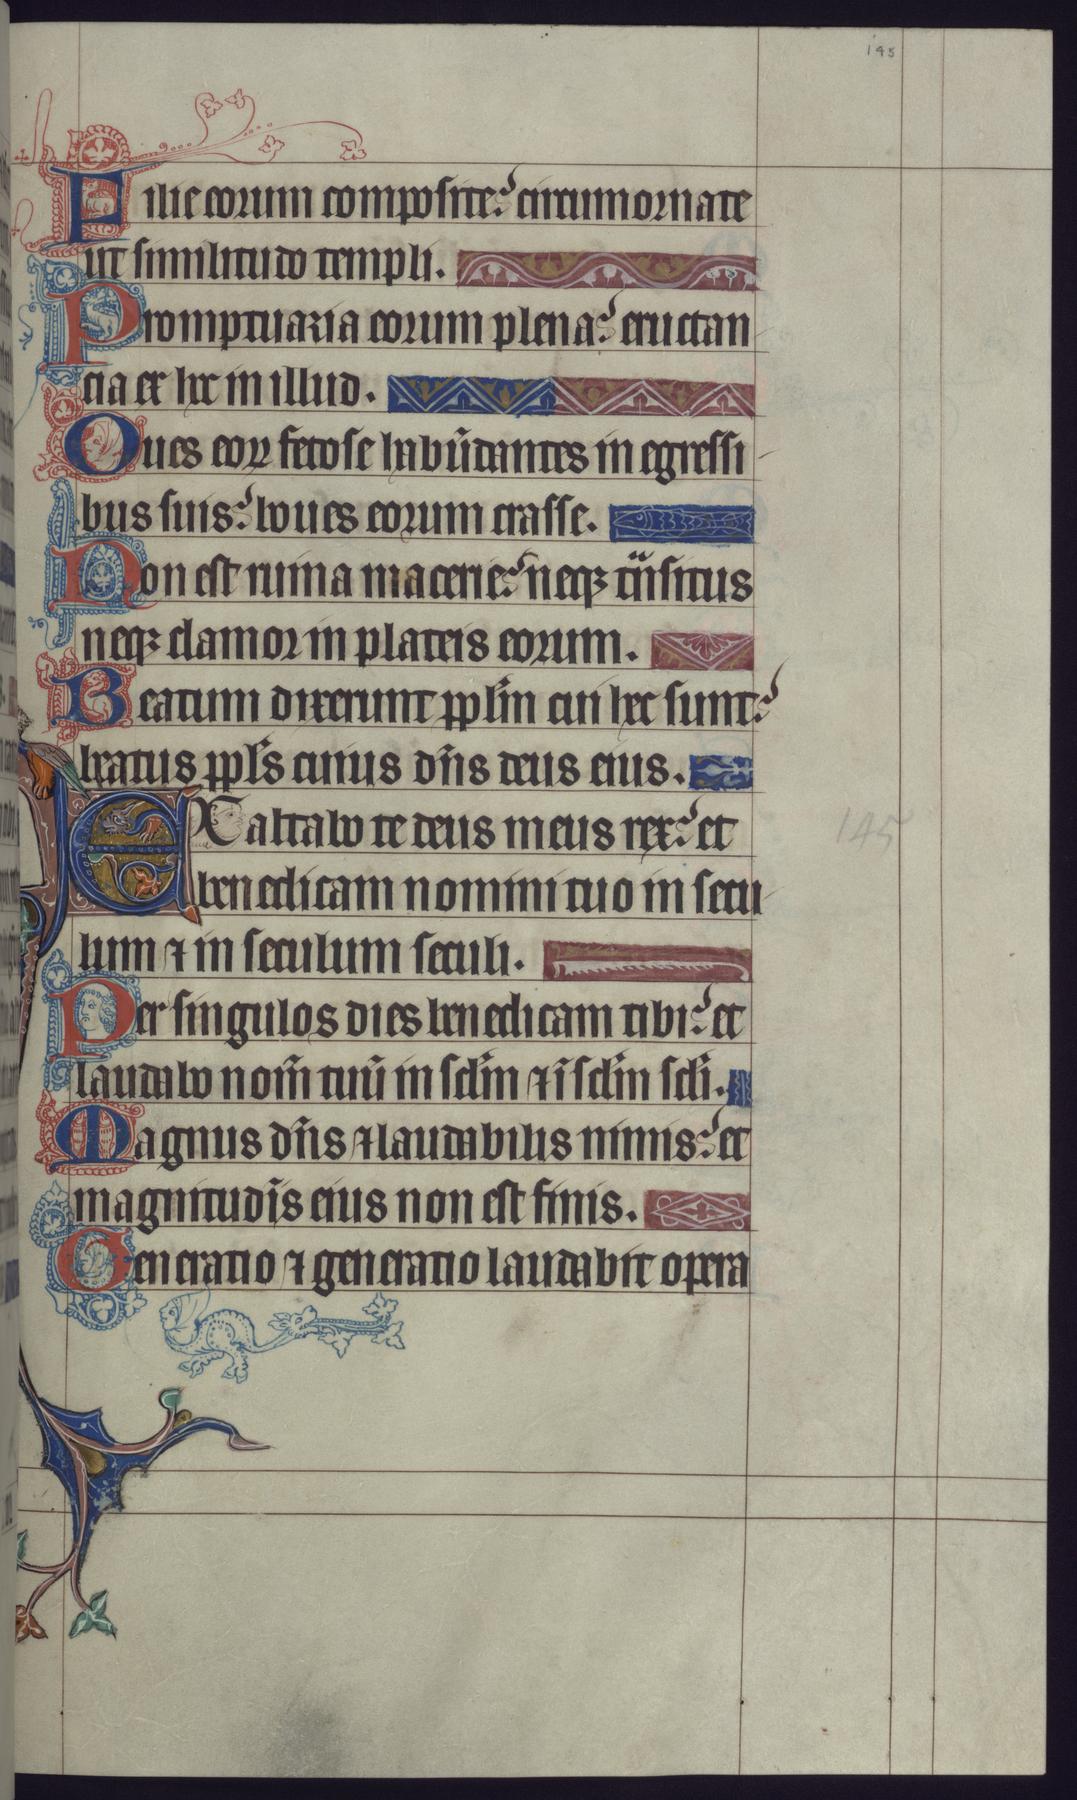 145
Filie eorum composite: circumornate
ut similitudo templi.
Promptuaria eorum plena: eructan
cia ex hec in illud.
Oues eoꝝ fetose habũdantes in egressi
bus suis: boues eorum crasse.
Non est ruina macerie: neqꝫ tñsitus
neqꝫ clamor in plateis eorum.
Beatum dixerunt pplm̄ cui hec sunt:
beatus ppls̄ cuius dñs deus eius.
EXaltabo te deus meus rex: et
benedicam nomini tuo in secu
lum ⁊ in seculum seculi.
Per singulos dies benedicam tibi: et
laudabo nom̄ tuū in sclm̄ ⁊ ī sclm̄ scli̅.
Magnus dñs ⁊ laudabilis nimis: et
magnitudīs eius non est finis.
Generatio ⁊ generatio laudabit opera
145